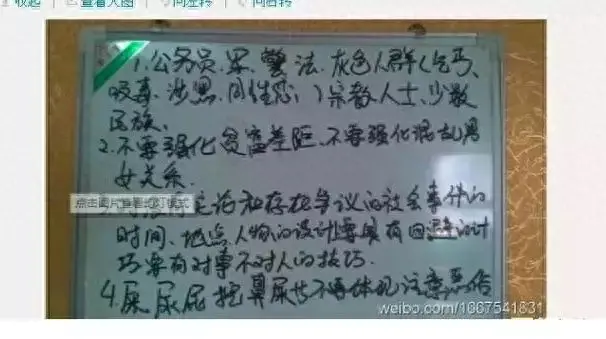 收起 查看大图 向左转 向右转
1.公务员、军、警、法、灰色人群(乞丐、
吸毒、涉黑、同性恋、)宗教人士、少数
民族、
2.不要强化贫富差距,不要强化混乱男
女关系.
点击图片查看幻灯模式
论和存在争议的社会事件的
时间、地点、人物的设计要具有回避的计
巧要有对事不对人的技巧.
4.屎、尿、屁、挖鼻屎等不要体现注意恶俗
weibo.com/1667541831